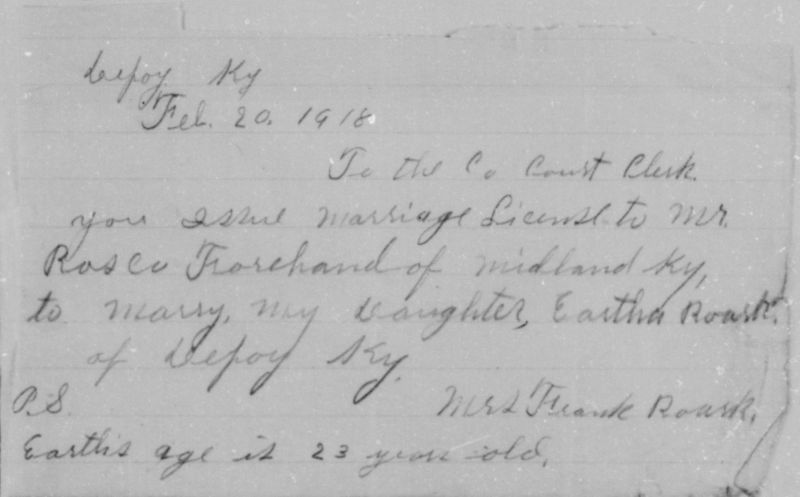 Depoy Ky
Feb. 20. 1918
To the Co Court Clerk.
you issue marriage License to Mr.
Rosco Forehand of Midland Ky,
to marry, my daughter, Eartha Roark.
of Depoy Ky.
P.S. Mrs Frank Roark.
Earthis age is 23 years old.